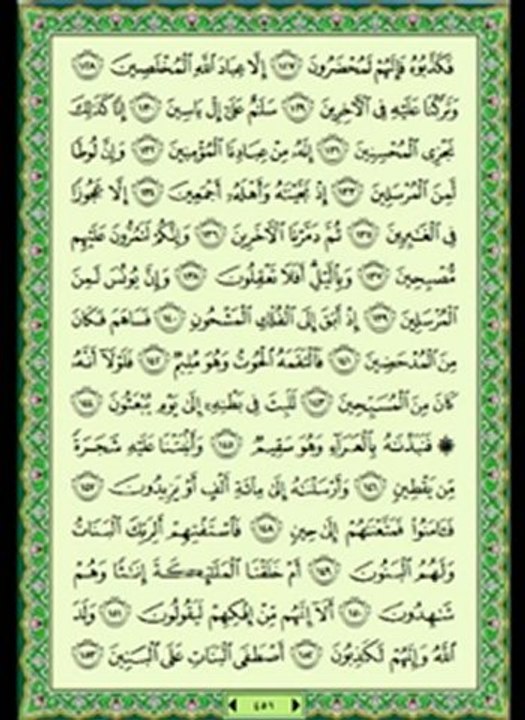 فَكَذَّبُوهُ فَإِنَّهُمْ لَمُحْضَرُونَ ١٢٧ إِلَّا عِبَادَ اللَّهِ الْمُخْلَصِينَ ١٢٨
وَتَرَكْنَا عَلَيْهِ فِي الْآخِرِينَ ١٢٩ سَلَامٌ عَلَىٰ إِلْ يَاسِينَ ١٣٠ إِنَّا كَذَٰلِكَ
نَجْزِي الْمُحْسِنِينَ ١٣١ إِنَّهُ مِنْ عِبَادِنَا الْمُؤْمِنِينَ ١٣٢ وَإِنَّ لُوطًا
لَمِنَ الْمُرْسَلِينَ ١٣٣ إِذْ نَجَّيْنَاهُ وَأَهْلَهُ أَجْمَعِينَ ١٣٤ إِلَّا عَجُوزًا
فِي الْغَابِرِينَ ١٣٥ ثُمَّ دَمَّرْنَا الْآخَرِينَ ١٣٦ وَإِنَّكُمْ لَتَمُرُّونَ عَلَيْهِم
مُّصْبِحِينَ ١٣٧ وَبِاللَّيْلِ أَفَلَا تَعْقِلُونَ ١٣٨ وَإِنَّ يُونُسَ لَمِنَ
الْمُرْسَلِينَ ١٣٩ إِذْ أَبَقَ إِلَى الْفُلْكِ الْمَشْحُونِ ١٤٠ فَسَاهَمَ فَكَانَ
مِنَ الْمُدْحَضِينَ ١٤١ فَالْتَقَمَهُ الْحُوتُ وَهُوَ مُلِيمٌ ١٤٢ فَلَوْلَا أَنَّهُ
كَانَ مِنَ الْمُسَبِّحِينَ ١٤٣ لَلَبِثَ فِي بَطْنِهِ إِلَىٰ يَوْمِ يُبْعَثُونَ ١٤٤
۞ فَنَبَذْنَاهُ بِالْعَرَاءِ وَهُوَ سَقِيمٌ ١٤٥ وَأَنبَتْنَا عَلَيْهِ شَجَرَةً
مِّن يَقْطِينٍ ١٤٦ وَأَرْسَلْنَاهُ إِلَىٰ مِائَةِ أَلْفٍ أَوْ يَزِيدُونَ ١٤٧
فَآمَنُوا فَمَتَّعْنَاهُمْ إِلَىٰ حِينٍ ١٤٨ فَاسْتَفْتِهِمْ أَلِرَبِّكَ الْبَنَاتُ
وَلَهُمُ الْبَنُونَ ١٤٩ أَمْ خَلَقْنَا الْمَلَائِكَةَ إِنَاثًا وَهُمْ
شَاهِدُونَ ١٥٠ أَلَا إِنَّهُم مِّنْ إِفْكِهِمْ لَيَقُولُونَ ١٥١ وَلَدَ
اللَّهُ وَإِنَّهُمْ لَكَاذِبُونَ ١٥٢ أَصْطَفَى الْبَنَاتِ عَلَى الْبَنِينَ ١٥٣
٤٥١